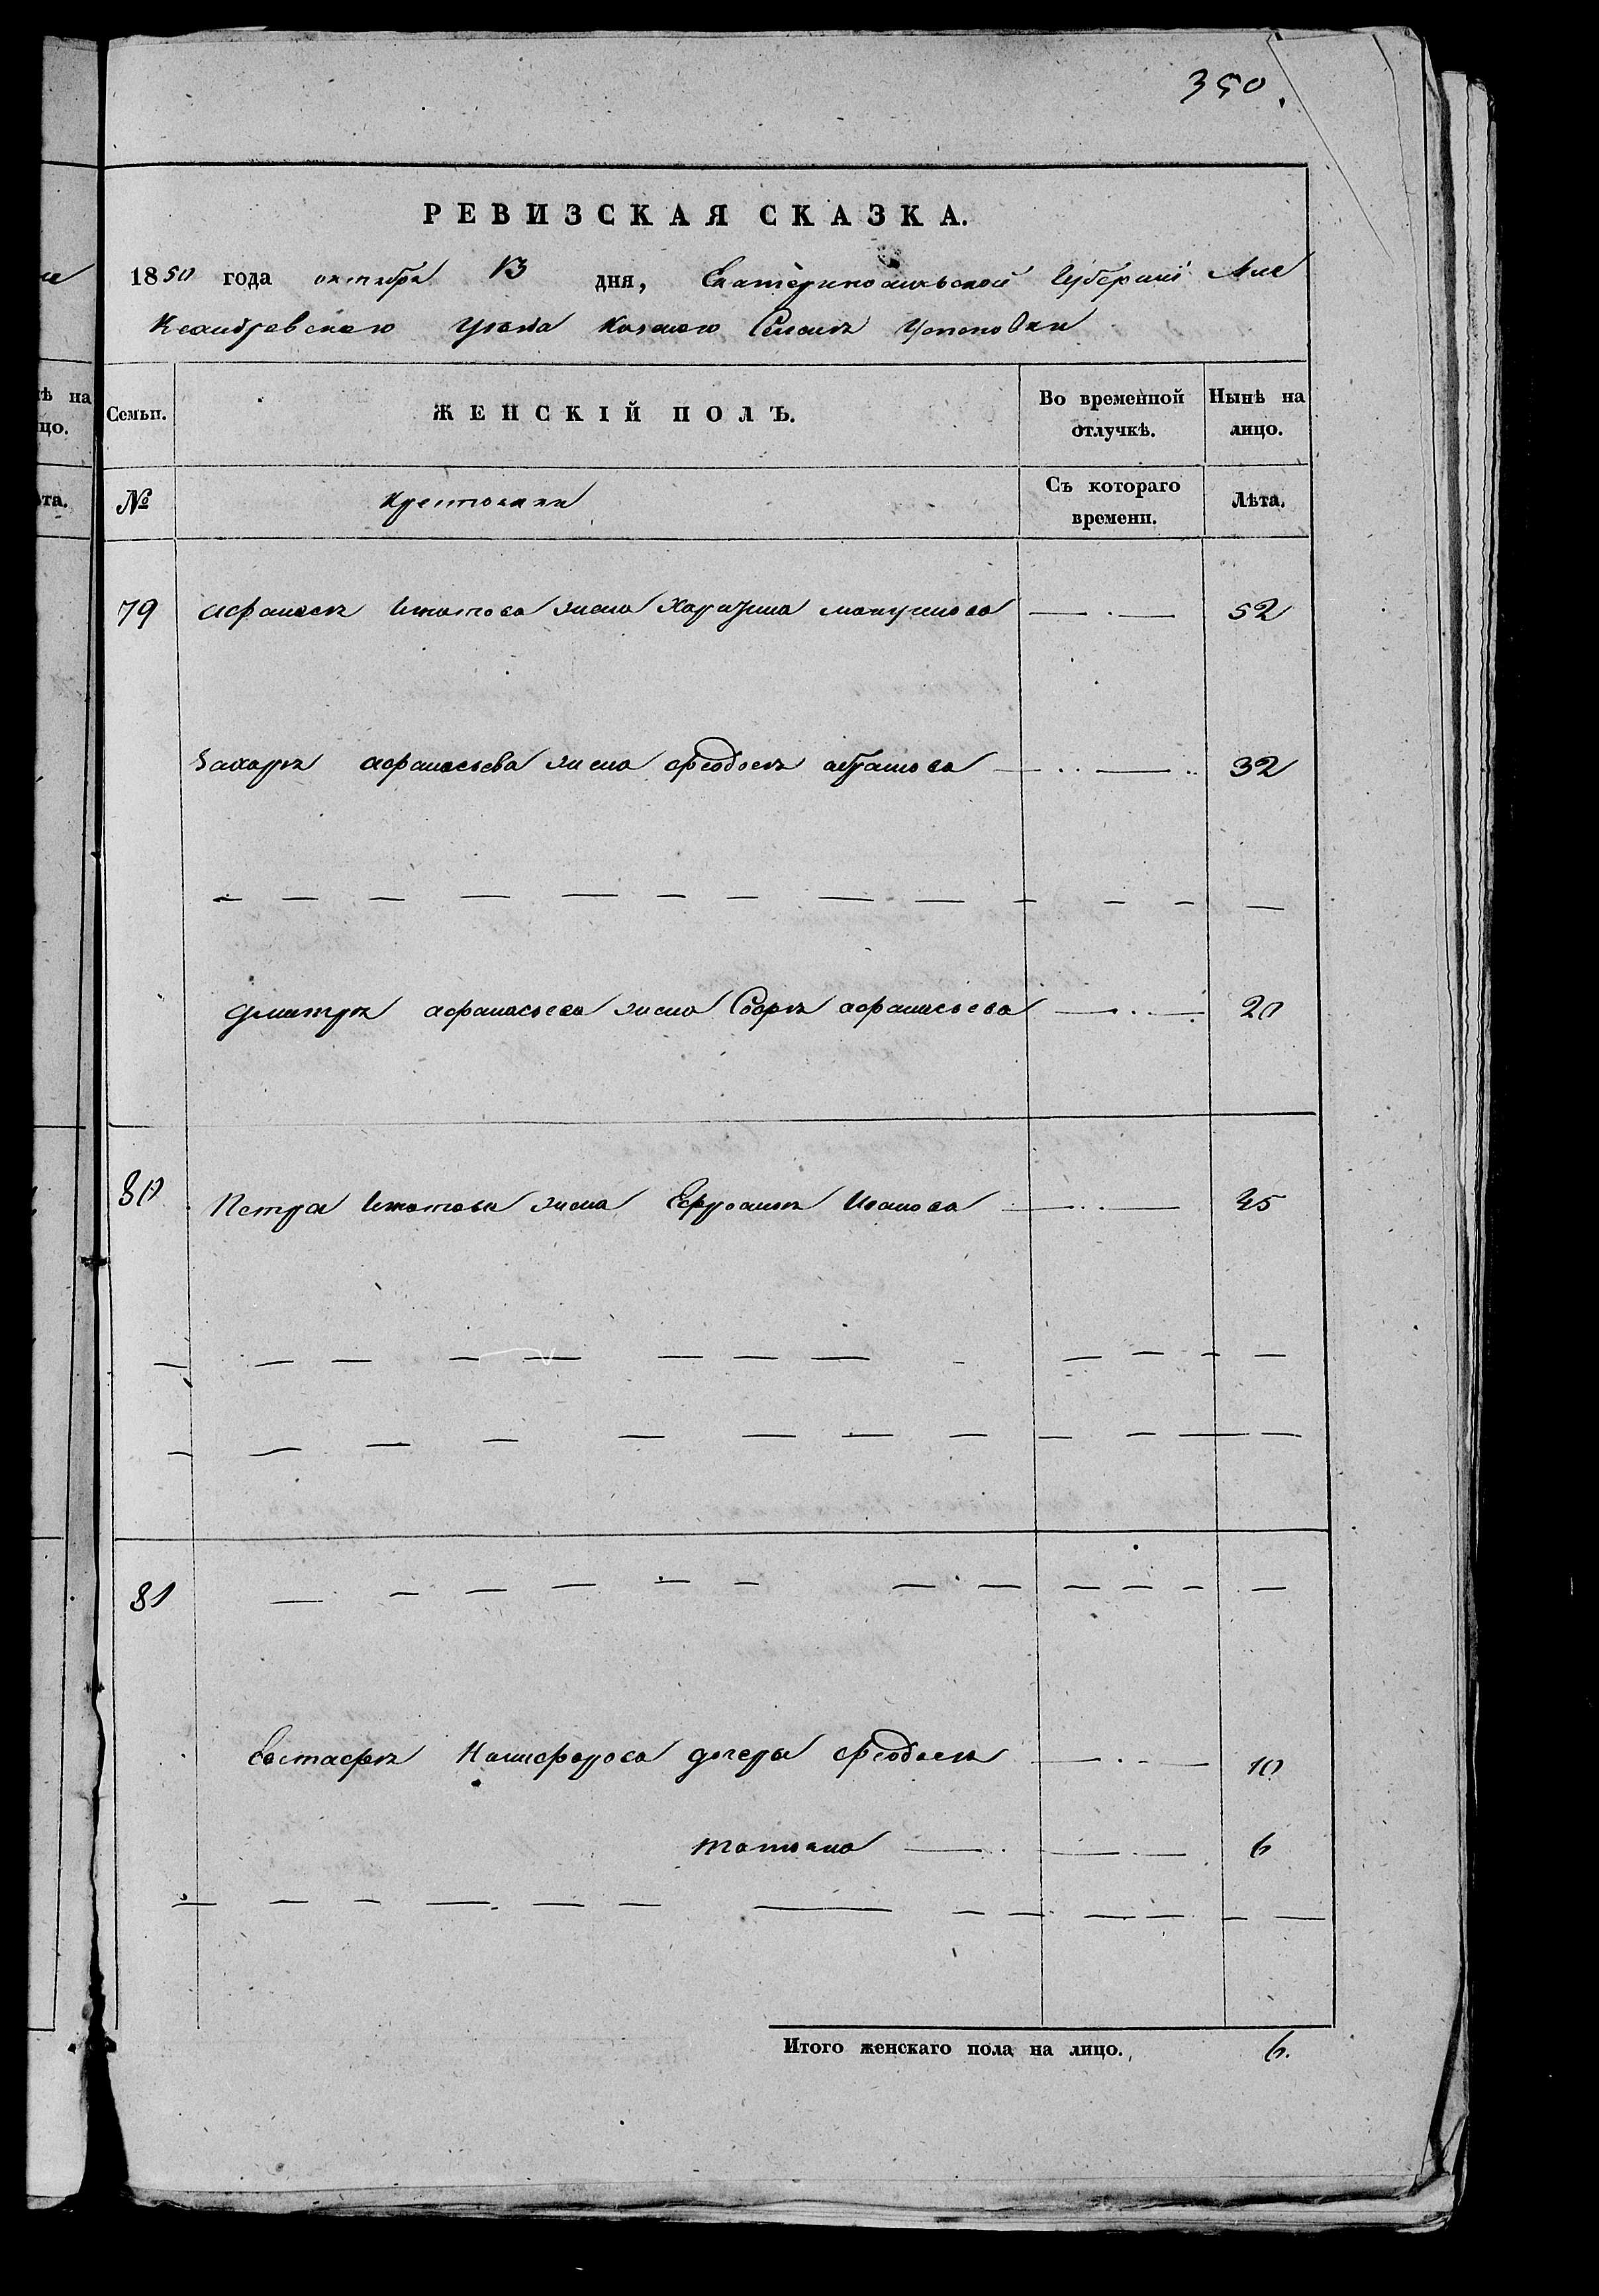 350.
РЕВИЗСКАЯ СКАЗКА.
1850 года октября 13 дня, Екатеринославской Губернии Але
Ксандровскаго Уезда Казенаго Селенія
Семьи. ЖЕНСКІЙ ПОЛЪ. Во временной отлучкѣ. Нынѣ на лицо.
№ Крестьяни Съ котораго времени. Лѣта.
ѣ на
цо.
та.
79 афанася Игнатова жена Харитина 52
Захаря афанасьева жена Феодося абрамова 32
Дмитря афанасьева жена Софя афанасьева 20
80 Петра Игнатова жена Ефросиня Иванова 45
81
Евстафя Никифорова дочеры Феодося 10
татияна 6
Итого женскаго пола на лицо. 6.